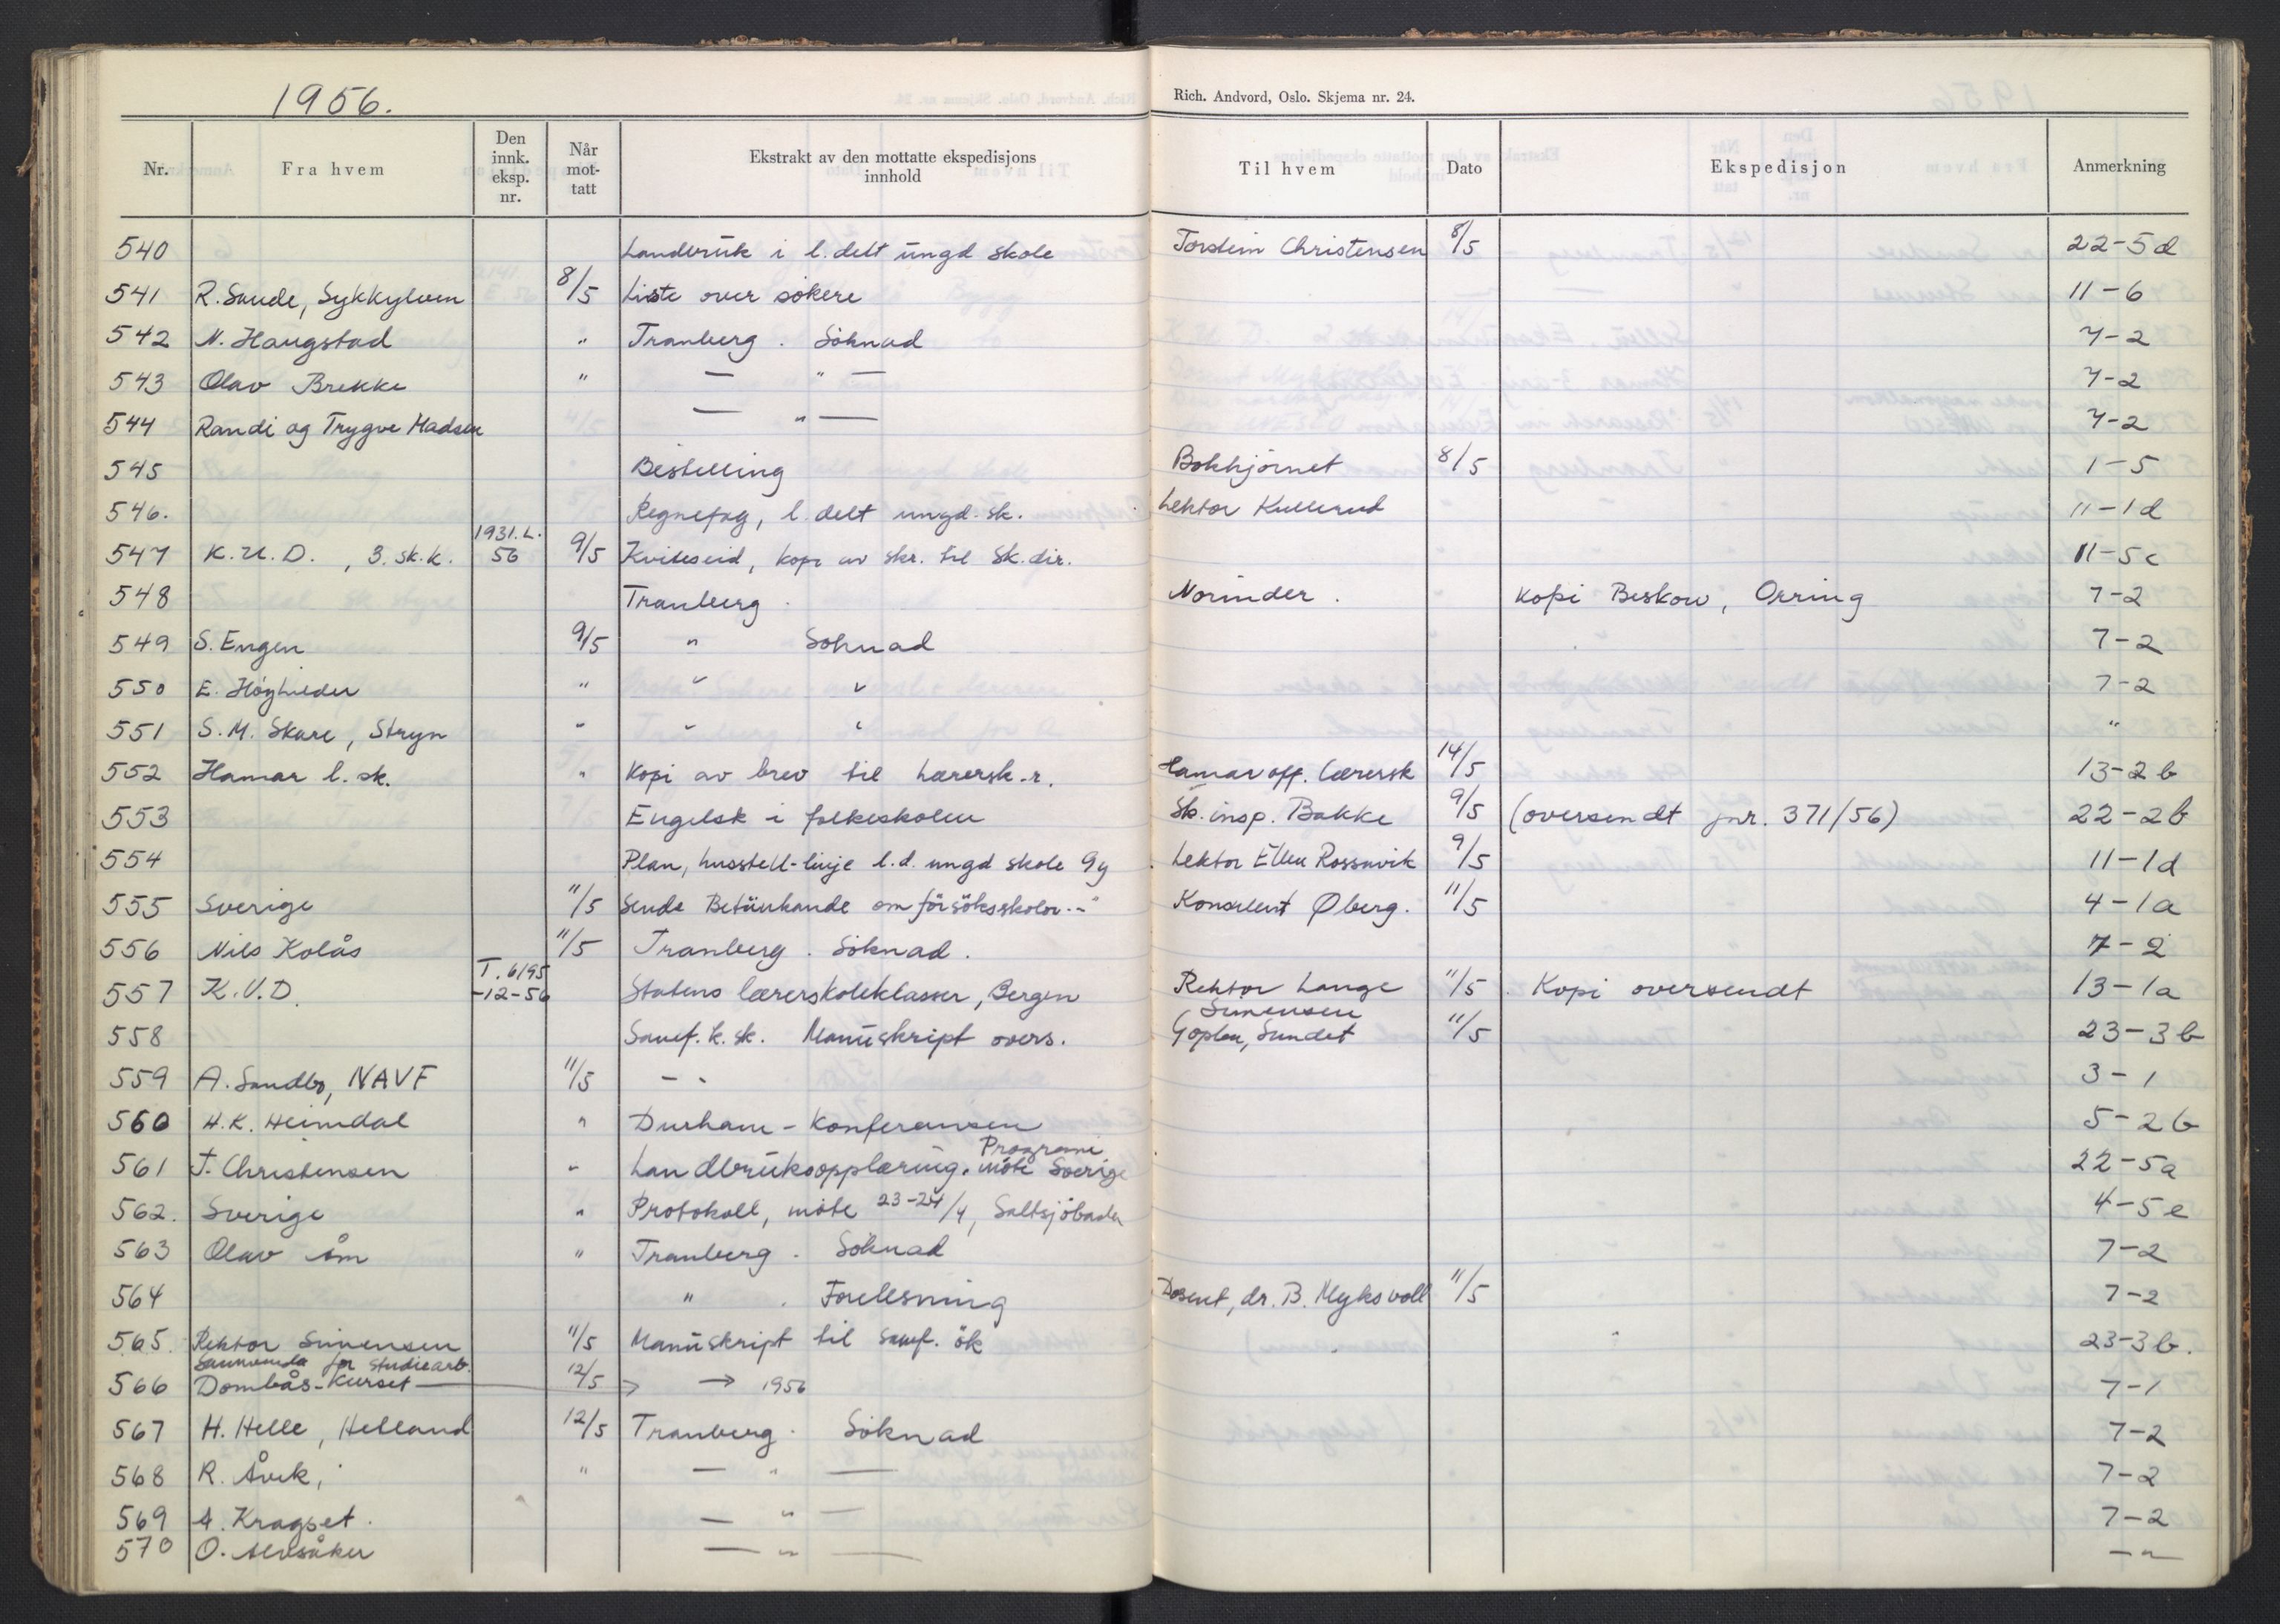 1956.
Rich. Andvord, Oslo. Skjema nr. 24.
Nr. Fra hvem Den innk. eksp. nr. Når mot-tatt Ekstrakt av den mottatte ekspedisjons innhold Til hvem Dato Ekspedisjon Anmerkning
540 Landbruk i l. delt ungd skole Torstein Christensen 8/5 22-5d
541 R. Saude, Sykkylven 8/5 Liste over søkere 11-6
542 N. Haugstad " Tranberg. Söknad 7-2
543 Olav Brekke " — " — 7-2
544 Randi og Trygve Madsen — " — 7-2
545 Bestilling Bokhjörnet 8/5 1-5
546. Regnefag, l. delt ungd. sk. Lektor Kullerud 11-1d
547 K.U.D., 3. sk.k. 1931.L. 56 9/5 Kviteseid, kopi av skr. til sk.dir. 11-5c
548 Tranberg. Norinder. Kopi Beskow, Orring 7-2
549 S. Engen 9/5 " Söknad 7-2
550 E. " " " 7-2
551 S.M. Skare, Stryn " " " "
552 Hamar l.sk. " Kopi av brev til Lærersk.r. Hamar off. lærersk 14/5 13-2b
553 Engelsk i folkeskolen Sk.insp. Bakke 9/5 (oversendt jnr. 371/56) 22-2b
554 Plan, husstell-linje l.d. ungd skole 9y Lektor Ellen Rossavik 9/5 11-1d
555 Sverige 11/5 Sende Betänkande om försöksskolor -" Konsulent Øberg. 11/5 4-1a
556 Nils Kolås 11/5 Tranberg. Söknad. 7-2
557 K.U.D. T. 6195 -12-56 Statens lærerskoleklasser, Bergen Rektor Lange 11/5 Kopi oversendt 13-1a
558 Samf. k. sk. Manuskript overs. Simensen Goplen, Sundet 11/5 23-3b
559 A. Sandbo, NAVF 11/5 - - 3-1
560 H.K. Heimdal " Durham-Konferansen 5-2b
561 T. Christensen " Landbruksopplæring. Program møte Sverige 22-5a
562. Sverige " Protokoll, möte 23-24/4, Saltsjöbaden 4-5e
563 Olav Åm " Tranberg. Söknad 7-2
564 " . Forelesning Dosent, dr. B. Myksvoll 11/5 7-2
565. Rektor Simensen 11/5 Manuskript til samf. ök 23-3b.
566 Samnemnda for studiearb. Dombås-kurset — 12/5 → 1956 7-1
567 H. Helle, Helland 12/5 Tranberg. Söknad 7-2
568 R. Åvik, " — " — 7-2
569 A. Kragset. — " — 7-2
570 O. Alvsåker — " — — "